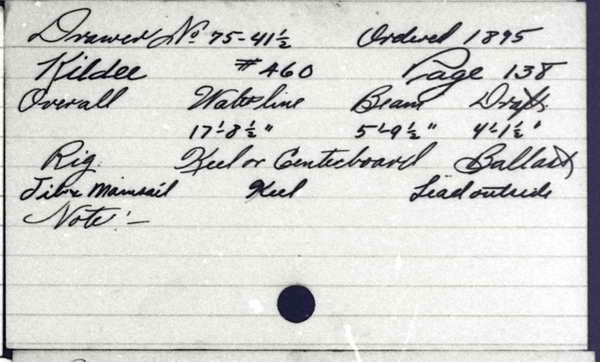 Drawer No 75-41½ Ordered 1895
Kildee #460 Page 138
Overall Waterline Beam Draft
17'-8½" 5'-9½" 4'-1½"
Rig Keel or Centerboard Ballast
Jib & Mainsail Keel Lead outside
Note:-